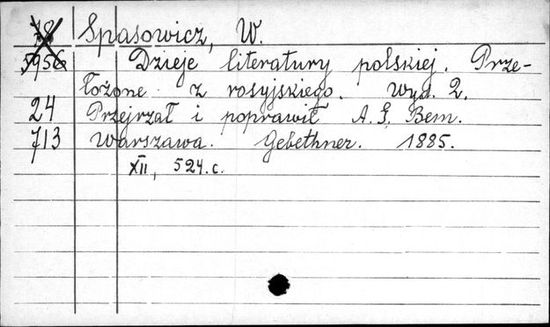 78 Spasowicz, W.
5956 Dzieje literatury polskiej. Prze-
łożone z rosyjskiego. Wyd. 2.
24 Przejrzał i poprawił A. G. Bem.
713 Warszawa. Gebethner. 1885.
XII, 524 c.